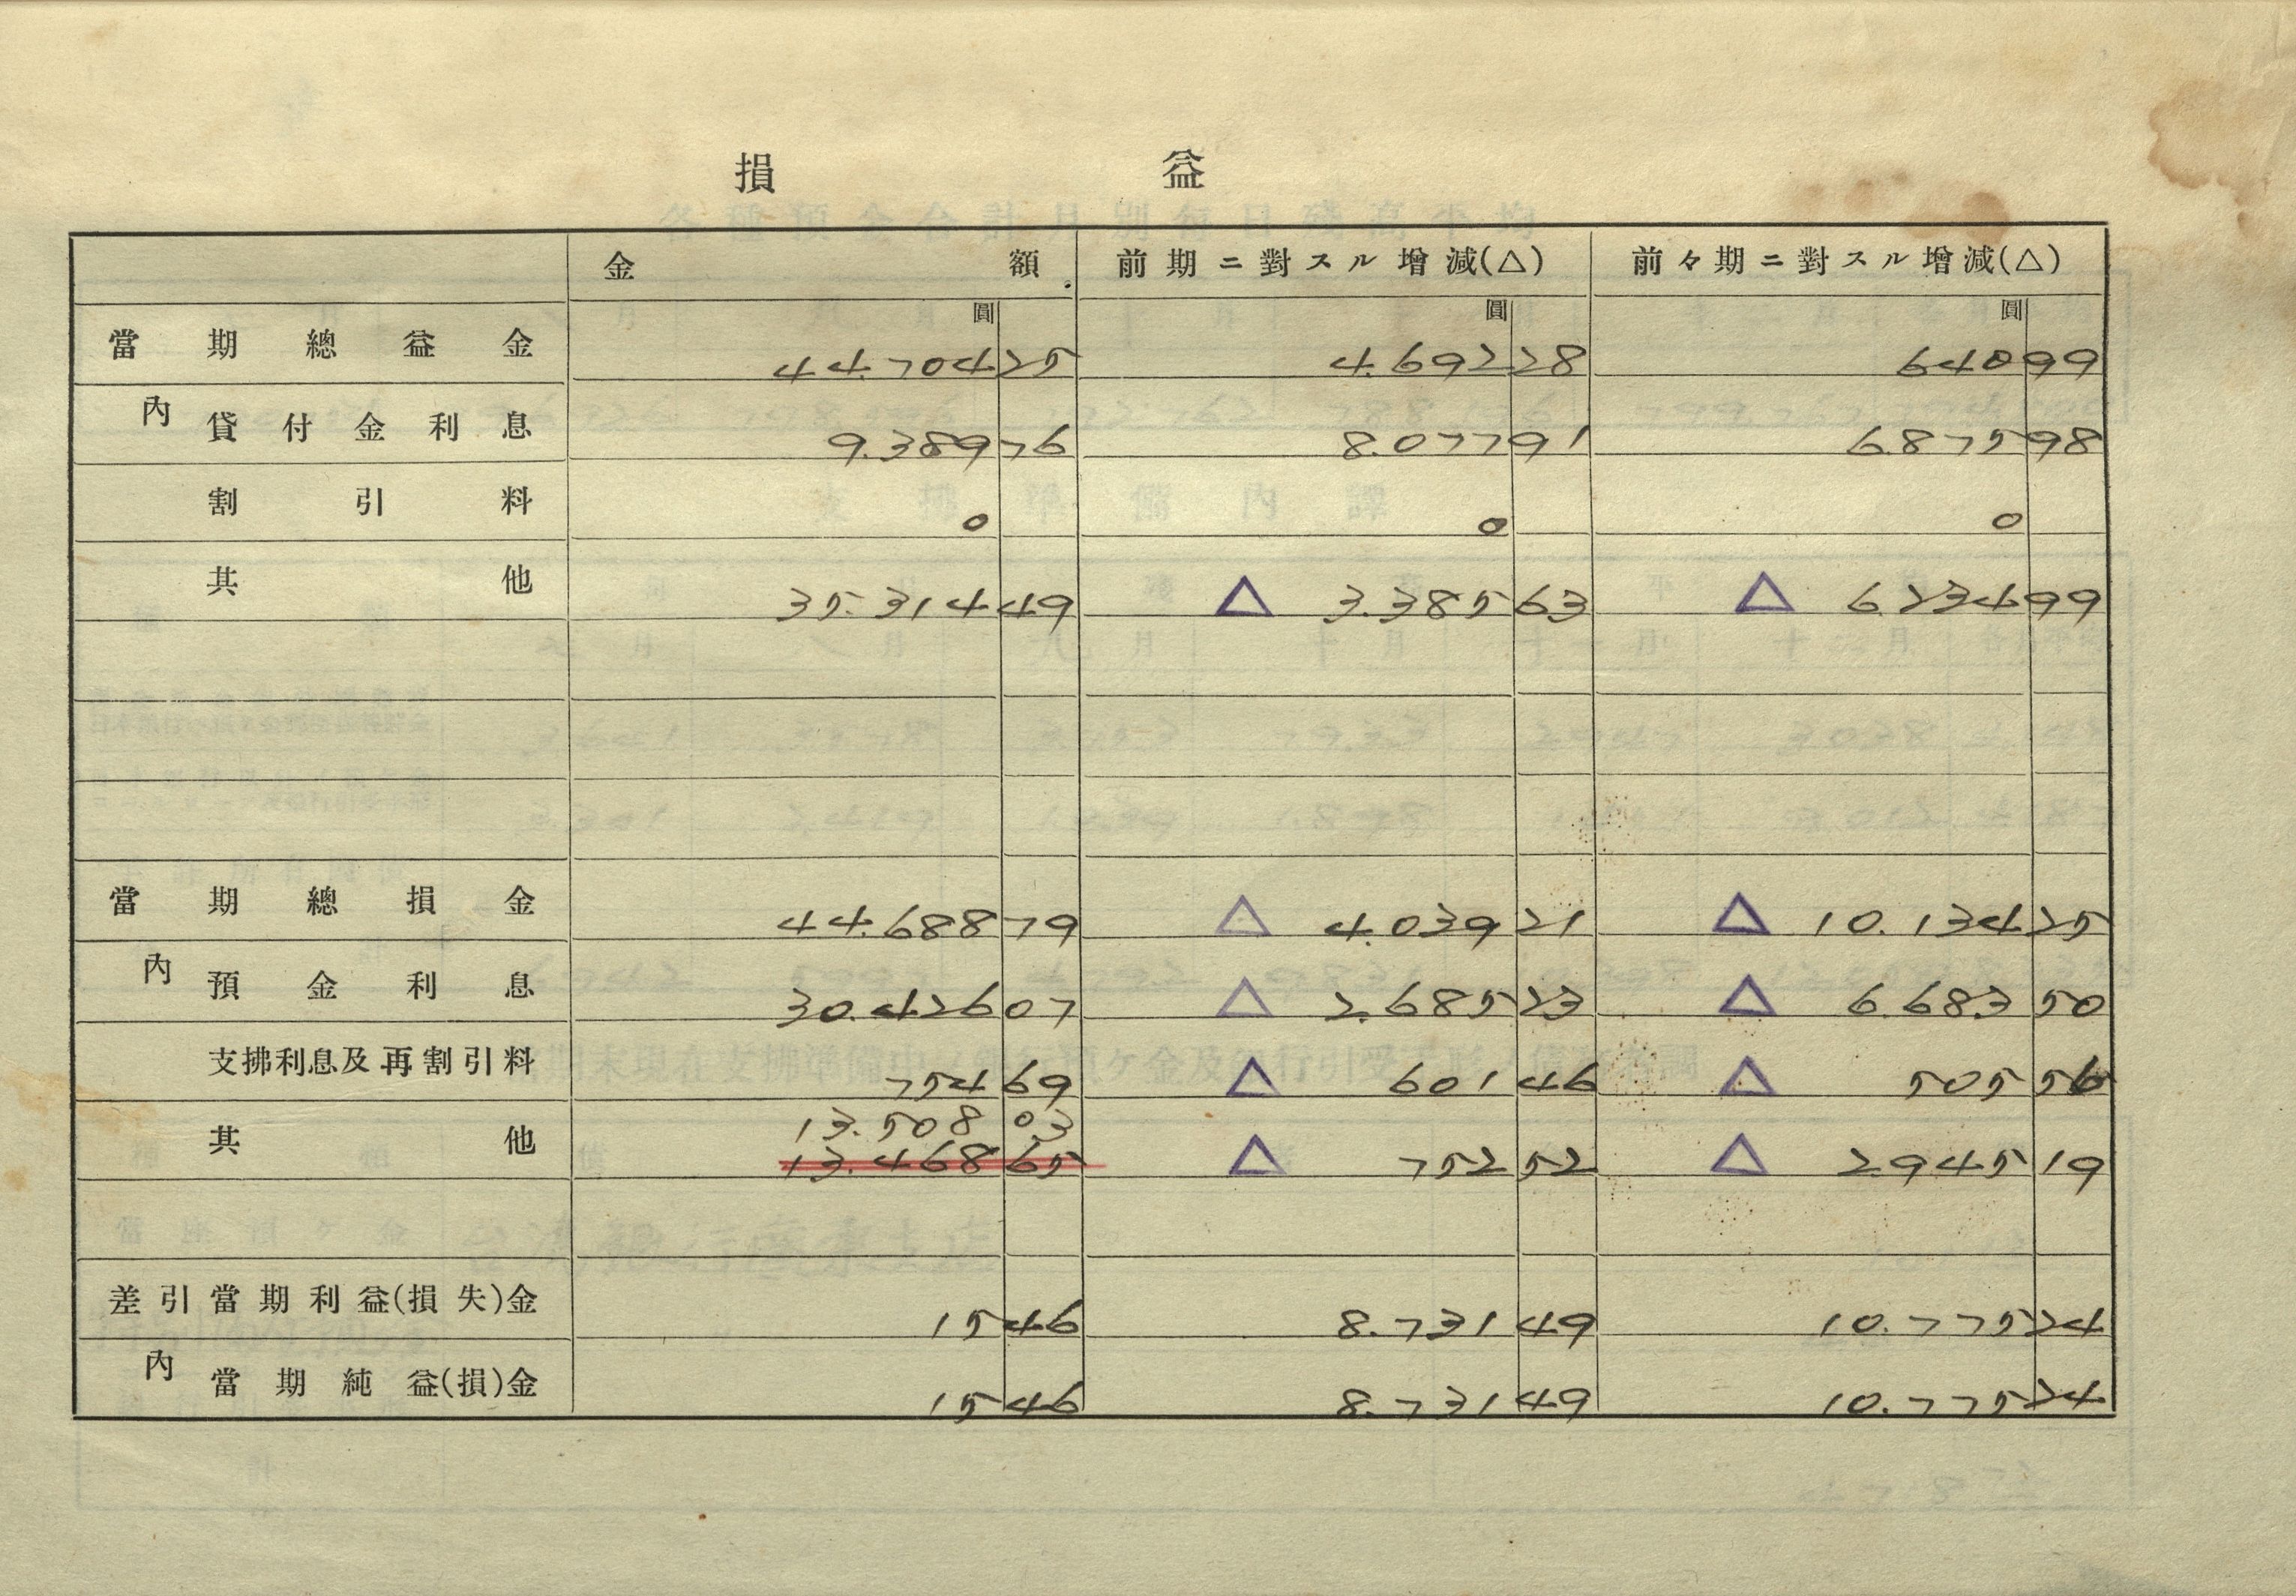 損益
金額 前期ニ對スル增減(△) 前々期ニ對スル增減(△)
圓 圓 圓
當期總益金 44.704 25 4.692 28 640 99
內 貸付金利息 9.389 76 8.077 91 6.875 98
割引料 0 0 0
其他 35.314 49 △ 3.385 63 △ 6.234 99
當期總損金 44.688 79 △ 4.039 21 △ 10.134 25
內 預金利息 30.426 07 △ 2.685 23 △ 6.683 50
支拂利息及再割引料 754 69 △ 601 46 △ 505 56
13.508 03
其他 13.468 65 △ 752 52 △ 2.945 19
差引當期利益(損失)金 15 46 8.731 49 10.775 24
內 當期純益(損)金 15 46 8.731 49 10.775 24